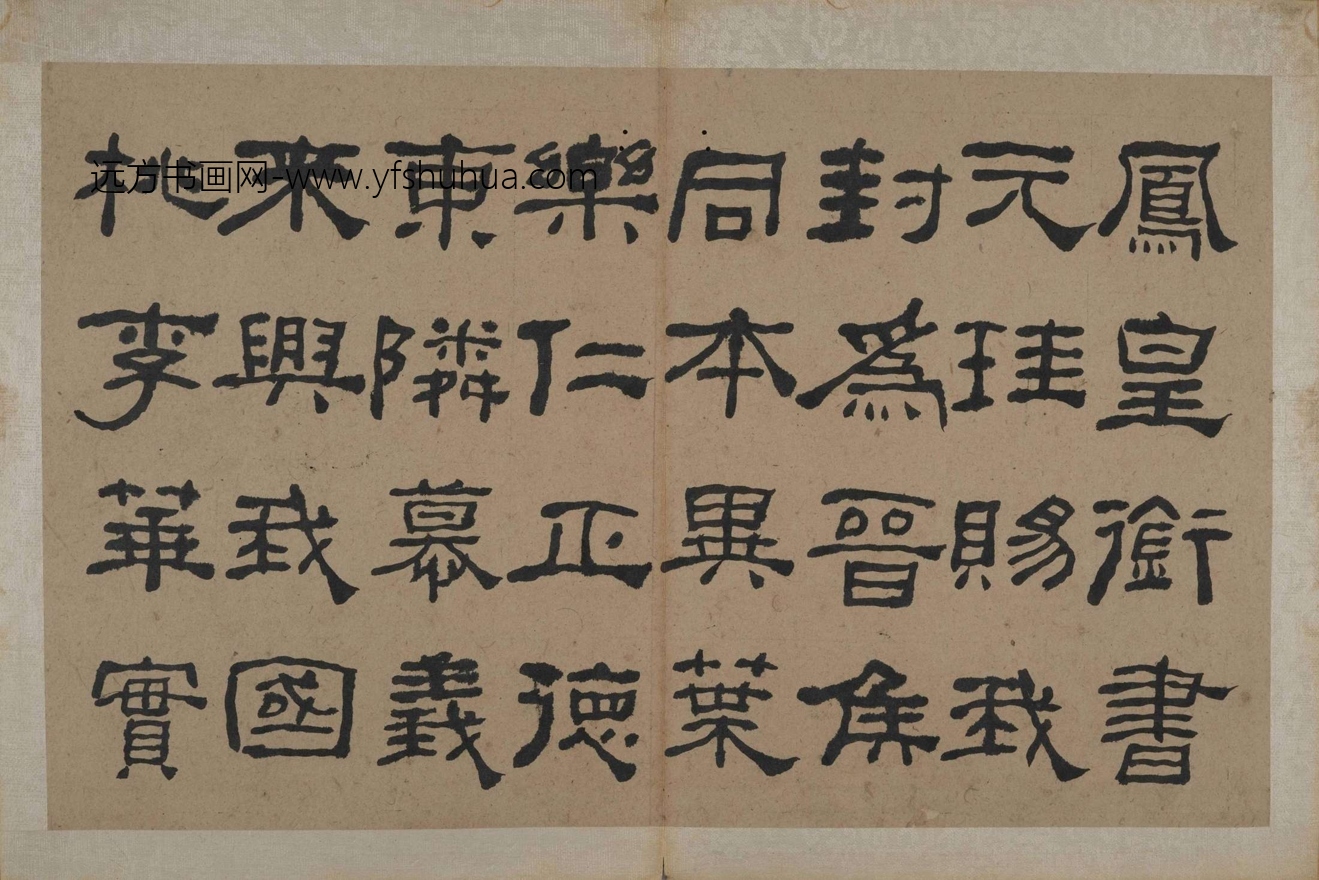 鳳皇銜書
元珪賜我
封爲晉侯
同本異葉
樂仁正德
東隣慕義
來興我國
桃李華實
远方书画网-www.yfshuhua.com